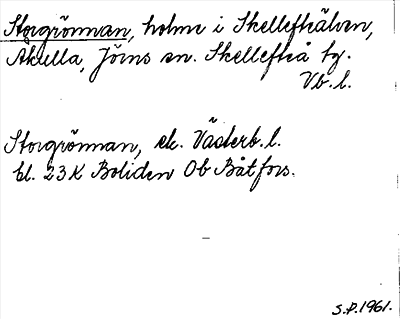 Storgrönnan, holme i Skellefteälven,
Akulla, Jörns sn. Skellefteå tg.
Vb. l.
Storgrönnan, ek. Västerb. l.
bl. 23 K Boliden Ob Båtfors.
S.P. 1961.